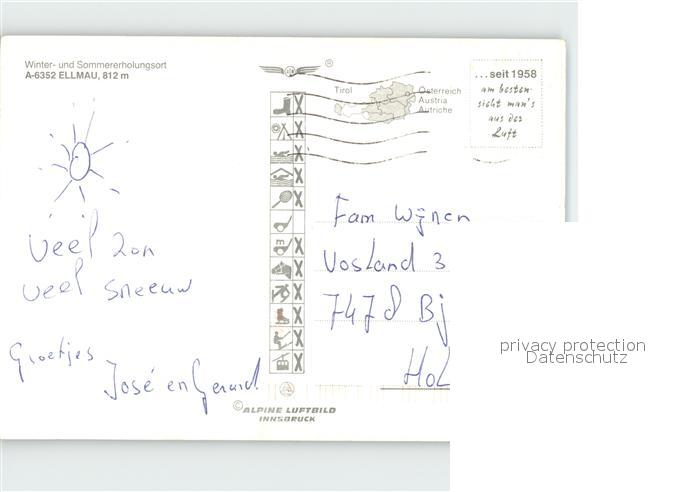 Winter- und Sommererholungsort
A-6352 ELLMAU, 812 m
Tirol
Österreich
Austria
Autriche
...seit 1958
am besten
sieht man's
aus der
Luft
Veel zon
veel sneeuw
Groetjes
José en Gerard
Fam Wijnen
Vosland 3
7478 Bij
Hol
privacy protection
Datenschutz
© ALPINE LUFTBILD
INNSBRUCK